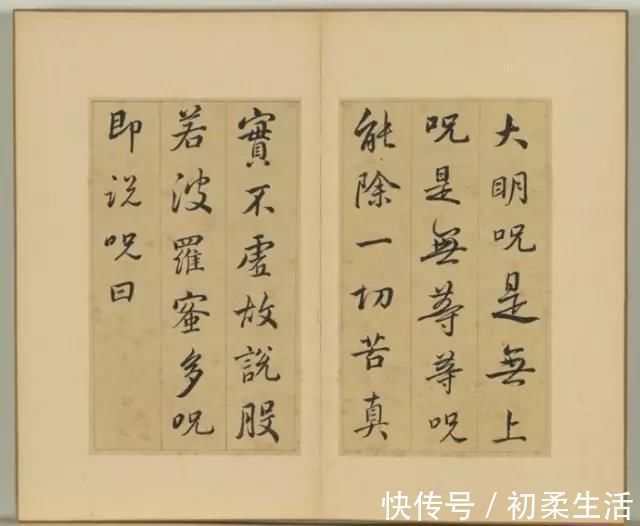 大明呪是無上
呪是無等等呪
能除一切苦真
實不虛故說般
若波羅蜜多呪
即说呪曰
快传号/初柔生活